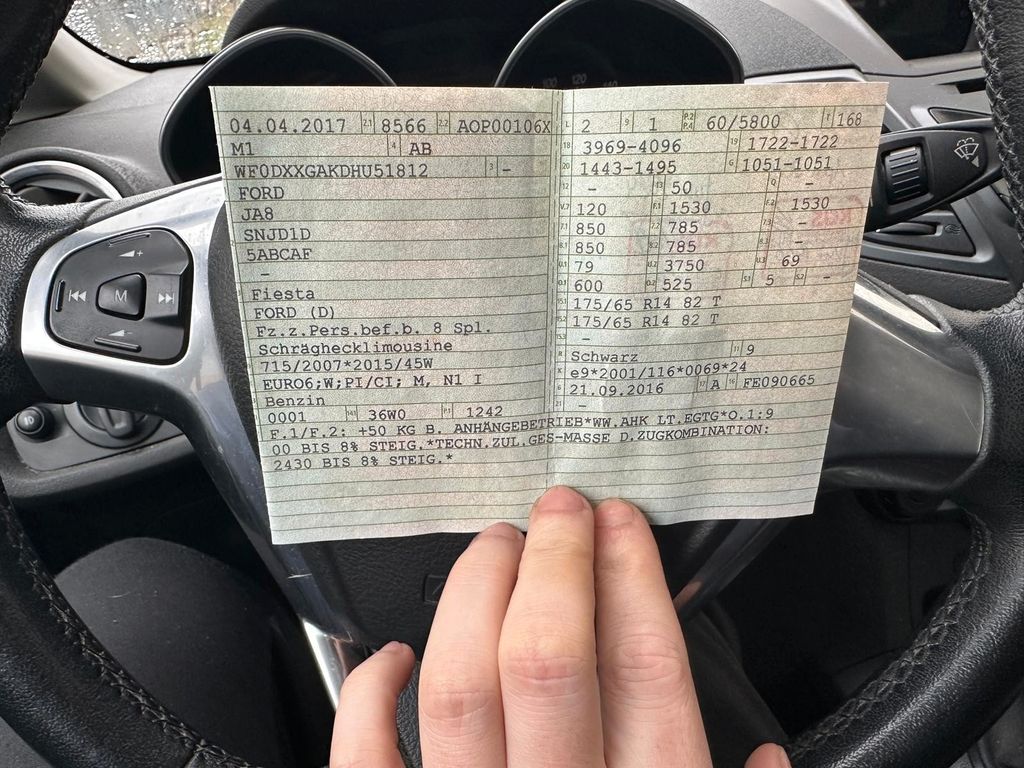 04.04.2017 2.1 8566 2.2 AOP00106X
M1 4 AB
WF0DXXGAKDHU51812 3 -
FORD
JA8
SNJD1D
5ABCAF
-
Fiesta
FORD (D)
Fz.z.Pers.bef.b. 8 Spl.
Schräghecklimousine
715/2007*2015/45W
EURO6;W;PI/CI; M, N1 I
Benzin
0001 14.1 36W0 P.1 1242
L 2 9 1 P.2 P.4 60/5800 T 168
18 3969-4096 19 1722-1722
20 1443-1495 G 1051-1051
12 - 13 50 Q -
V.7 120 F.1 1530 F.2 1530
7.1 850 7.2 785 7.3 -
8.1 850 8.2 785 8.3 -
U.1 79 U.2 3750 U.3 69
O.1 600 O.2 525 S.1 5 S.2 -
15.1 175/65 R14 82 T
15.2 175/65 R14 82 T
15.3 -
R Schwarz 11 9
K e9*2001/116*0069*24
6 21.09.2016 17 A 16 FE090665
-
F.1/F.2: +50 KG B. ANHÄNGEBETRIEB*WW.AHK LT.EGTG*O.1:9
00 BIS 8% STEIG.*TECHN.ZUL.GES-MASSE D.ZUGKOMBINATION:
2430 BIS 8% STEIG.*
M
120